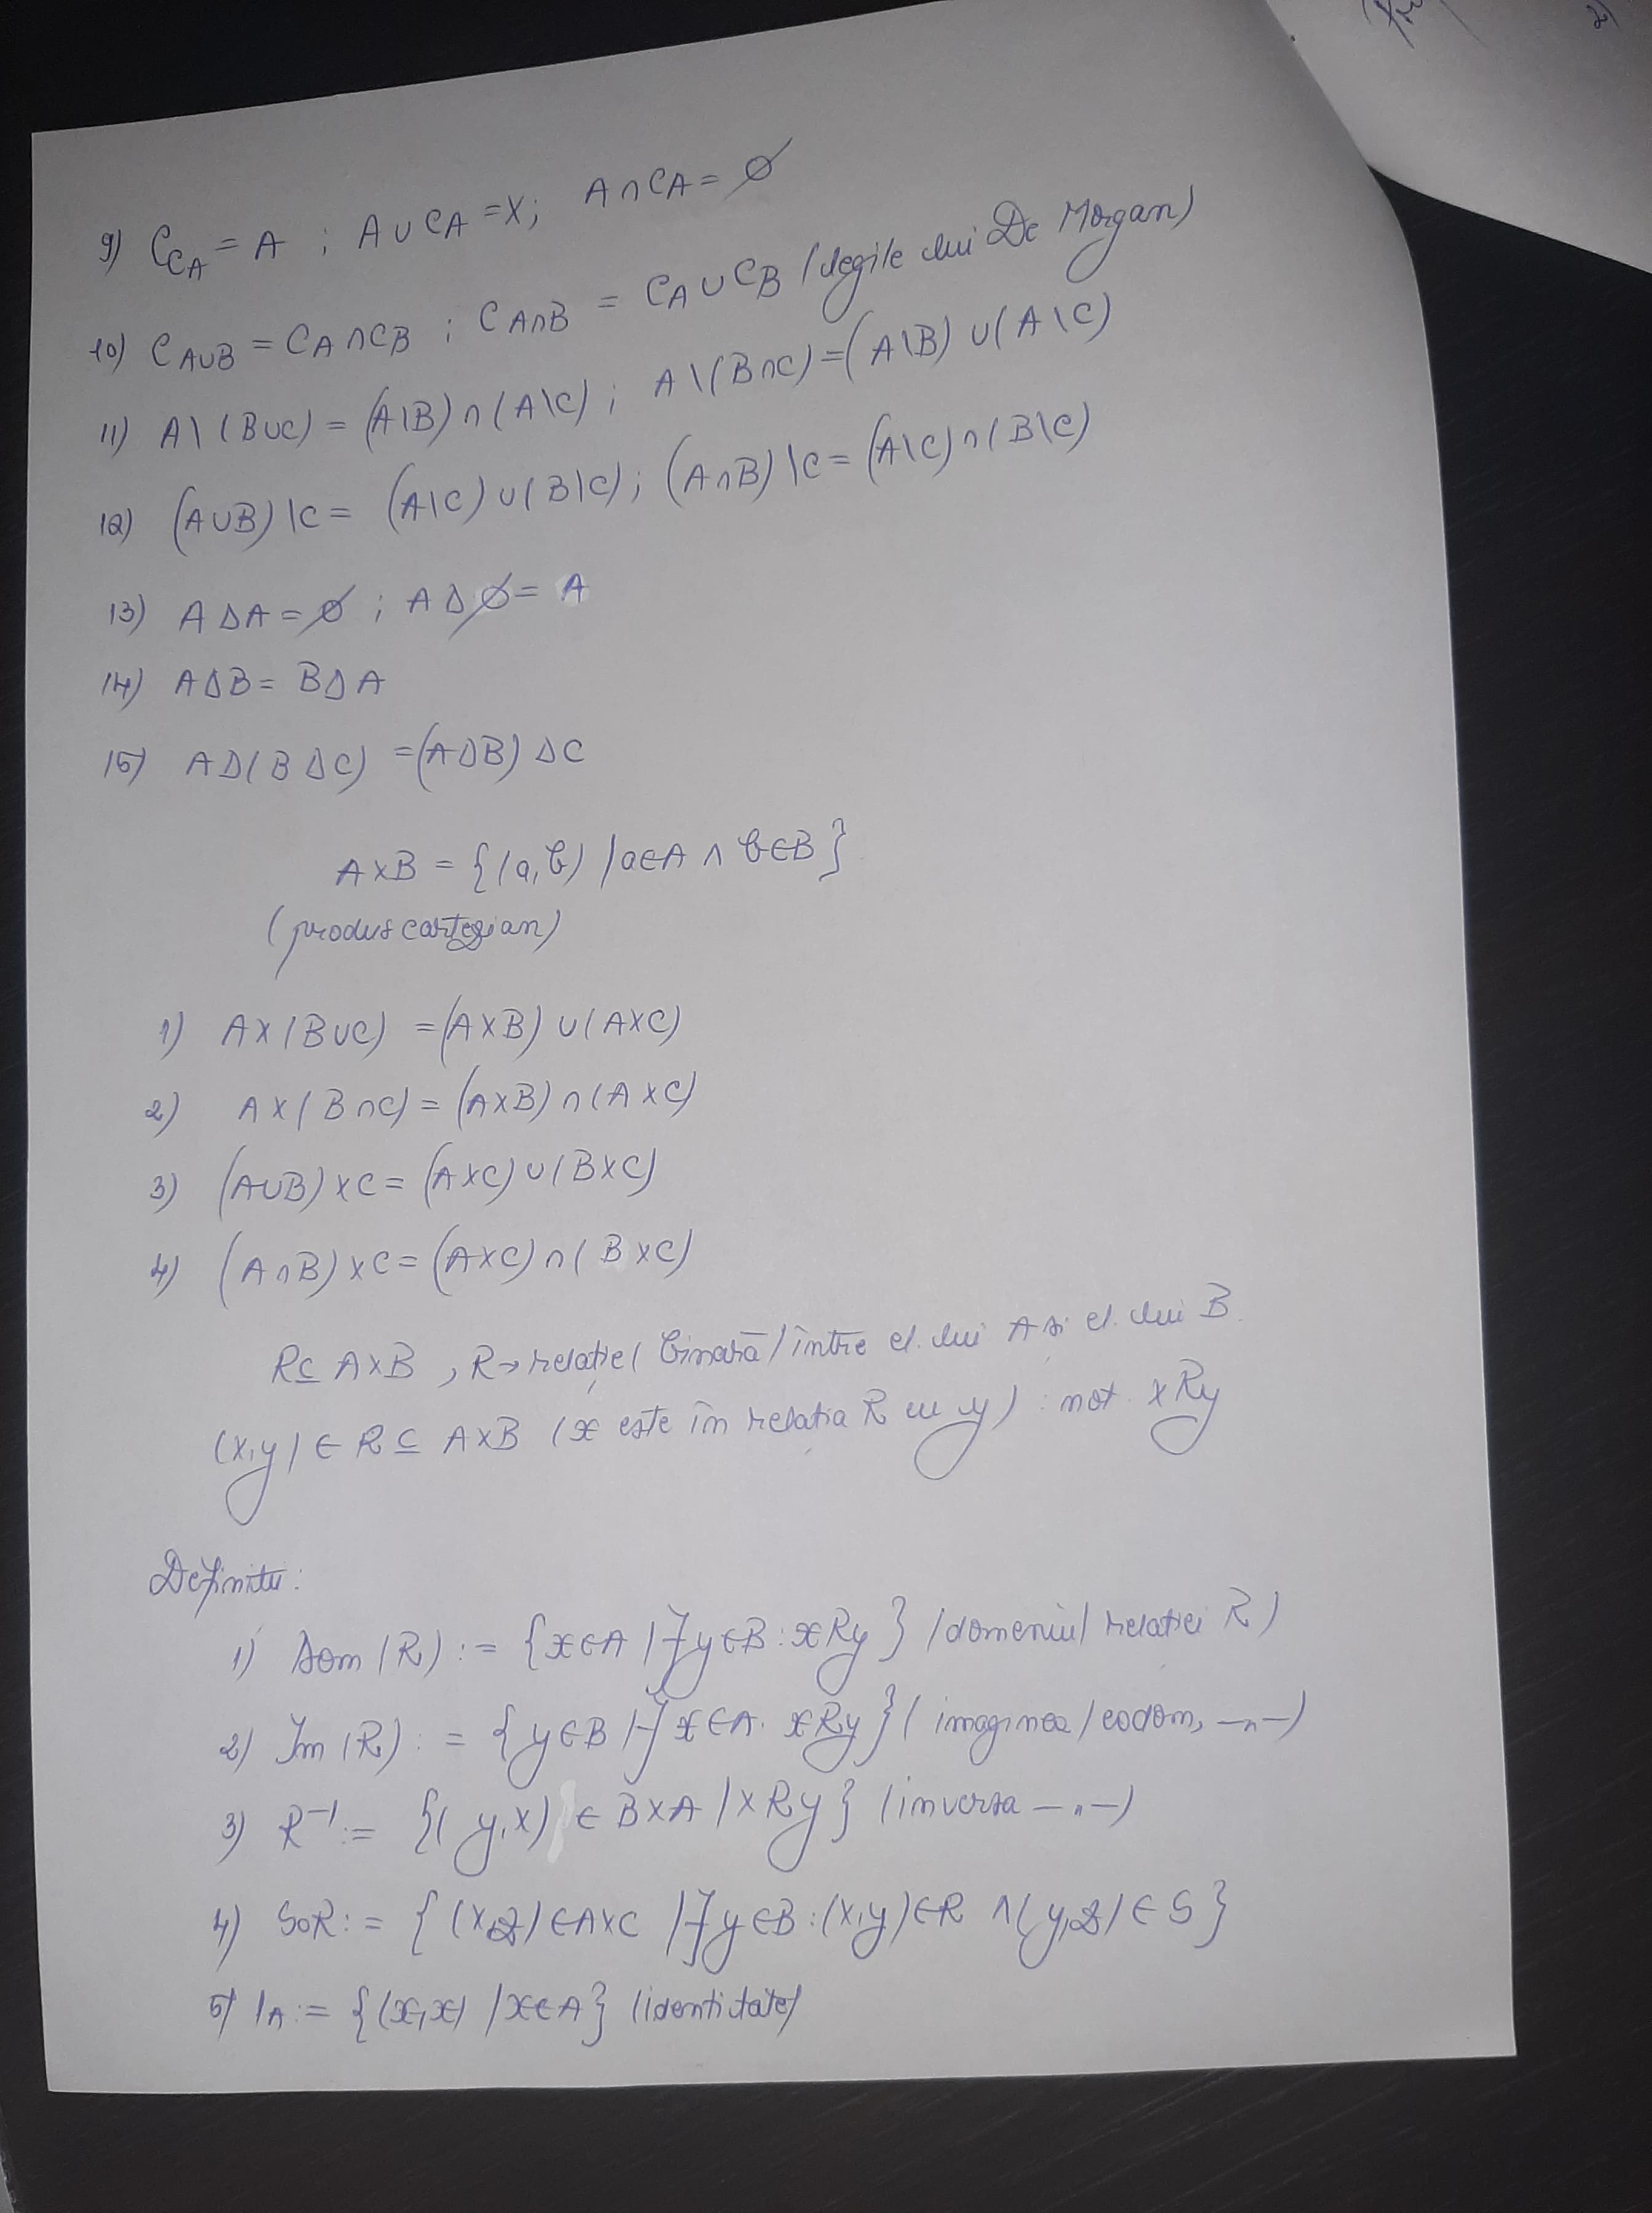 9) C_{C_A} = A ; A ∪ C_A = X; A ∩ C_A = ∅
10) C_{A∪B} = C_A ∩ C_B ; C_{A∩B} = C_A ∪ C_B (legile lui De Morgan)
11) A \ (B∪C) = (A\B) ∩ (A\C) ; A \ (B∩C) = (A\B) ∪ (A\C)
12) (A∪B) \ C = (A\C) ∪ (B\C) ; (A∩B) \ C = (A\C) ∩ (B\C)
13) A Δ A = ∅ ; A Δ ∅ = A
14) A Δ B = B Δ A
15) A Δ (B Δ C) = (A Δ B) Δ C
A×B = {(a,b) / a∈A ∧ b∈B}
(produs cartezian)
1) A×(B∪C) = (A×B) ∪ (A×C)
2) A×(B∩C) = (A×B) ∩ (A×C)
3) (A∪B)×C = (A×C) ∪ (B×C)
4) (A∩B)×C = (A×C) ∩ (B×C)
R ⊆ A×B , R → relație (binară) între el. lui A și el. lui B.
(x,y) ∈ R ⊆ A×B (x este în relația R cu y) : not. xRy
Definiții:
1) Dom (R) := {x∈A | ∃y∈B : xRy} (domeniul relației R)
2) Im (R) := {y∈B | ∃x∈A. xRy} (imaginea/codom, —"—)
3) R⁻¹ := {(y,x) ∈ B×A / xRy} (inversa —"—)
4) S∘R := {(x,z) ∈ A×C | ∃y∈B : (x,y)∈R ∧ (y,z) ∈ S}
5) 1_A := {(x,x) / x∈A} (identitate)